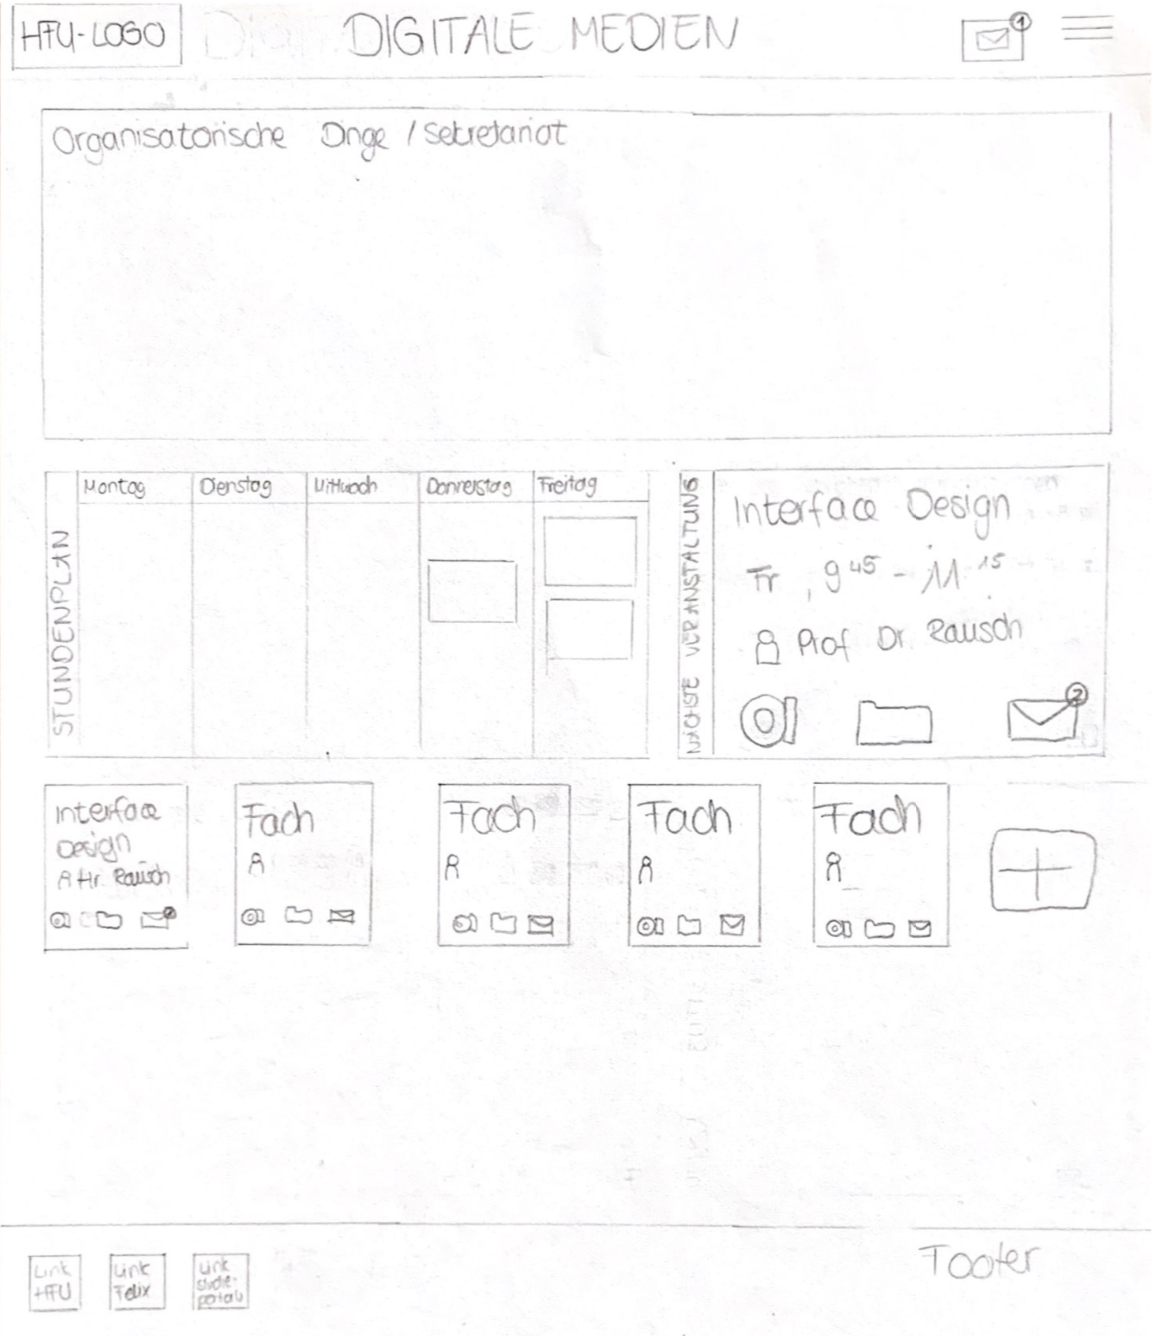 HFU-LOGO DIGITALE MEDIEN 1
Organisatorische Dinge / Sekretariat
STUNDENPLAN
Montag Dienstag Mittwoch Donnerstag Freitag
NÄCHSTE VERANSTALTUNG
Interface Design
Fr, 9 45 - 11 15
Prof Dr. Rausch
2
Interface
Design
Hr. Rausch
Fach
Fach
Fach
Fach
Link
HFU
Link
Felix
Link
Studie-
portal
Footer